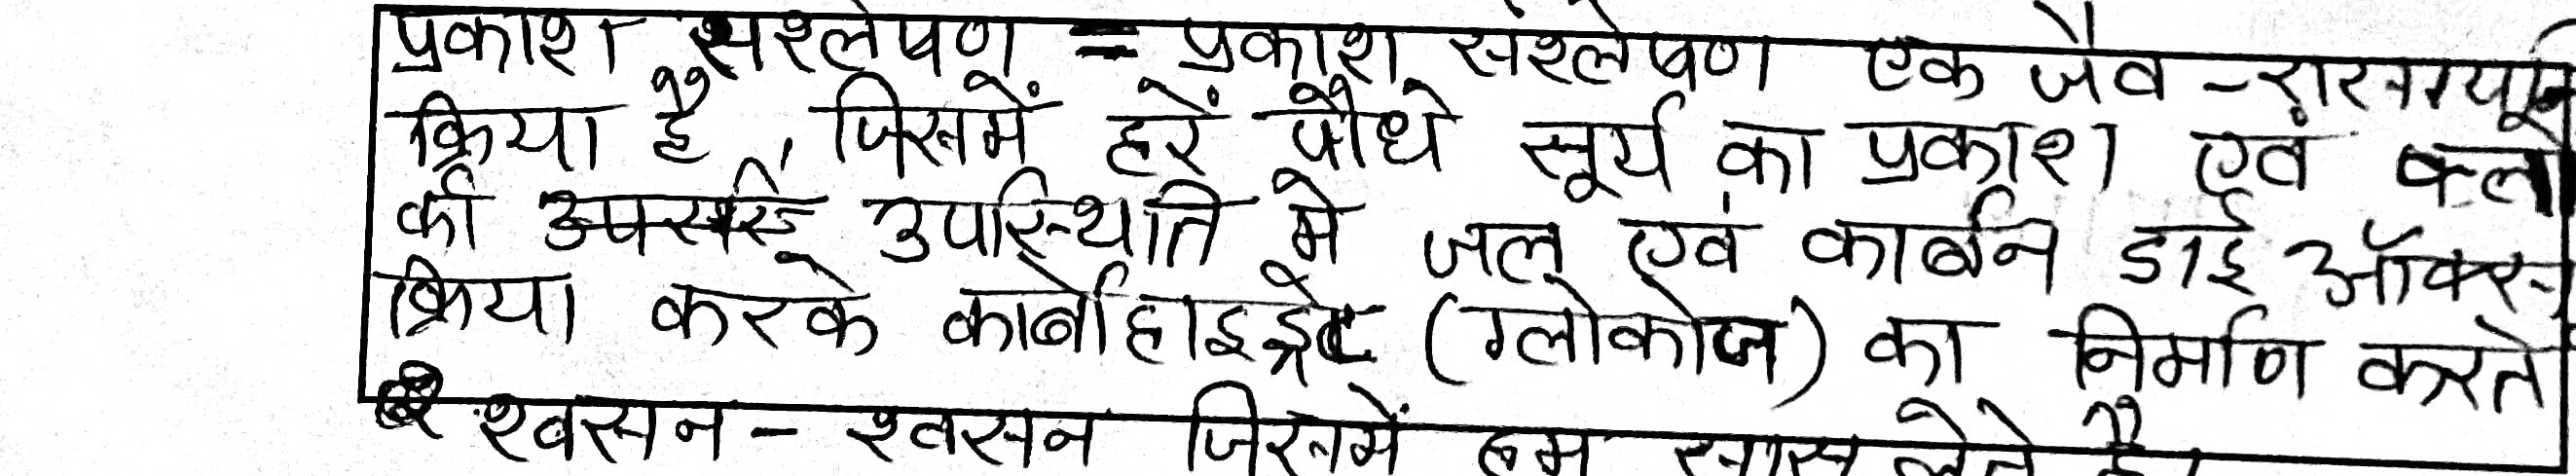 प्रकाश संश्लेषण = प्रकाश संश्लेषण एक जैव -रासायनि
क्रिया है, जिसमें हरें पौधे सूर्य का प्रकाश एवं क्लो
की उपस्थिति मे जल एवं कार्बन डाई ऑक्स
क्रिया करके कार्बोहाइड्रेट (ग्लोकोज) का निर्माण करते
श्वसन - श्वसन जिसमें हम सास लेते है